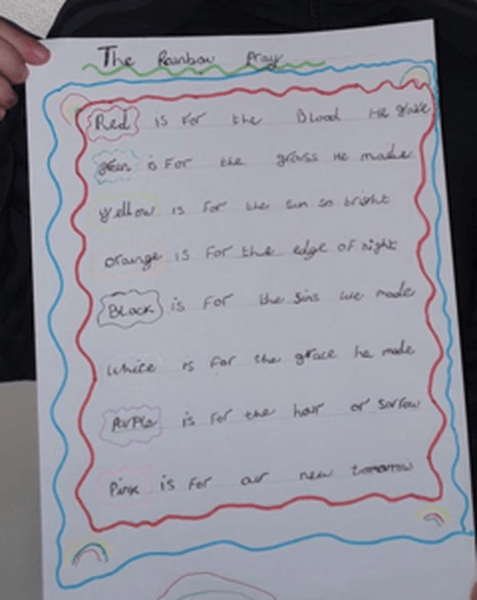 The Rainbow Pray
Red is For the Blood He gave
green is For the grass He made
yellow is For the sun so bright
orange is For the edge of night
Black is For the sins we made
White is For the grace he made
Purple is For the hour or sorrow
Pink is For our new tomorrow